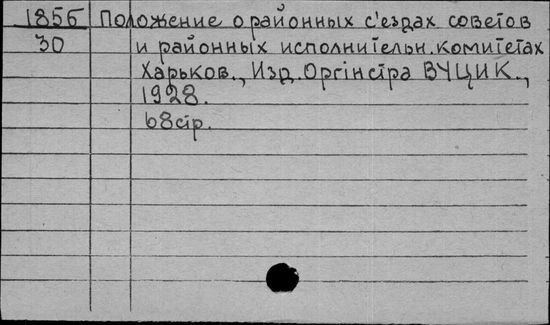 1856 Положение о районных с'ездах советов
30 и районных исполнительн. комитетах
Харьков., Изд. Оргінстра ВУЦИК.,
1928.
68стр.